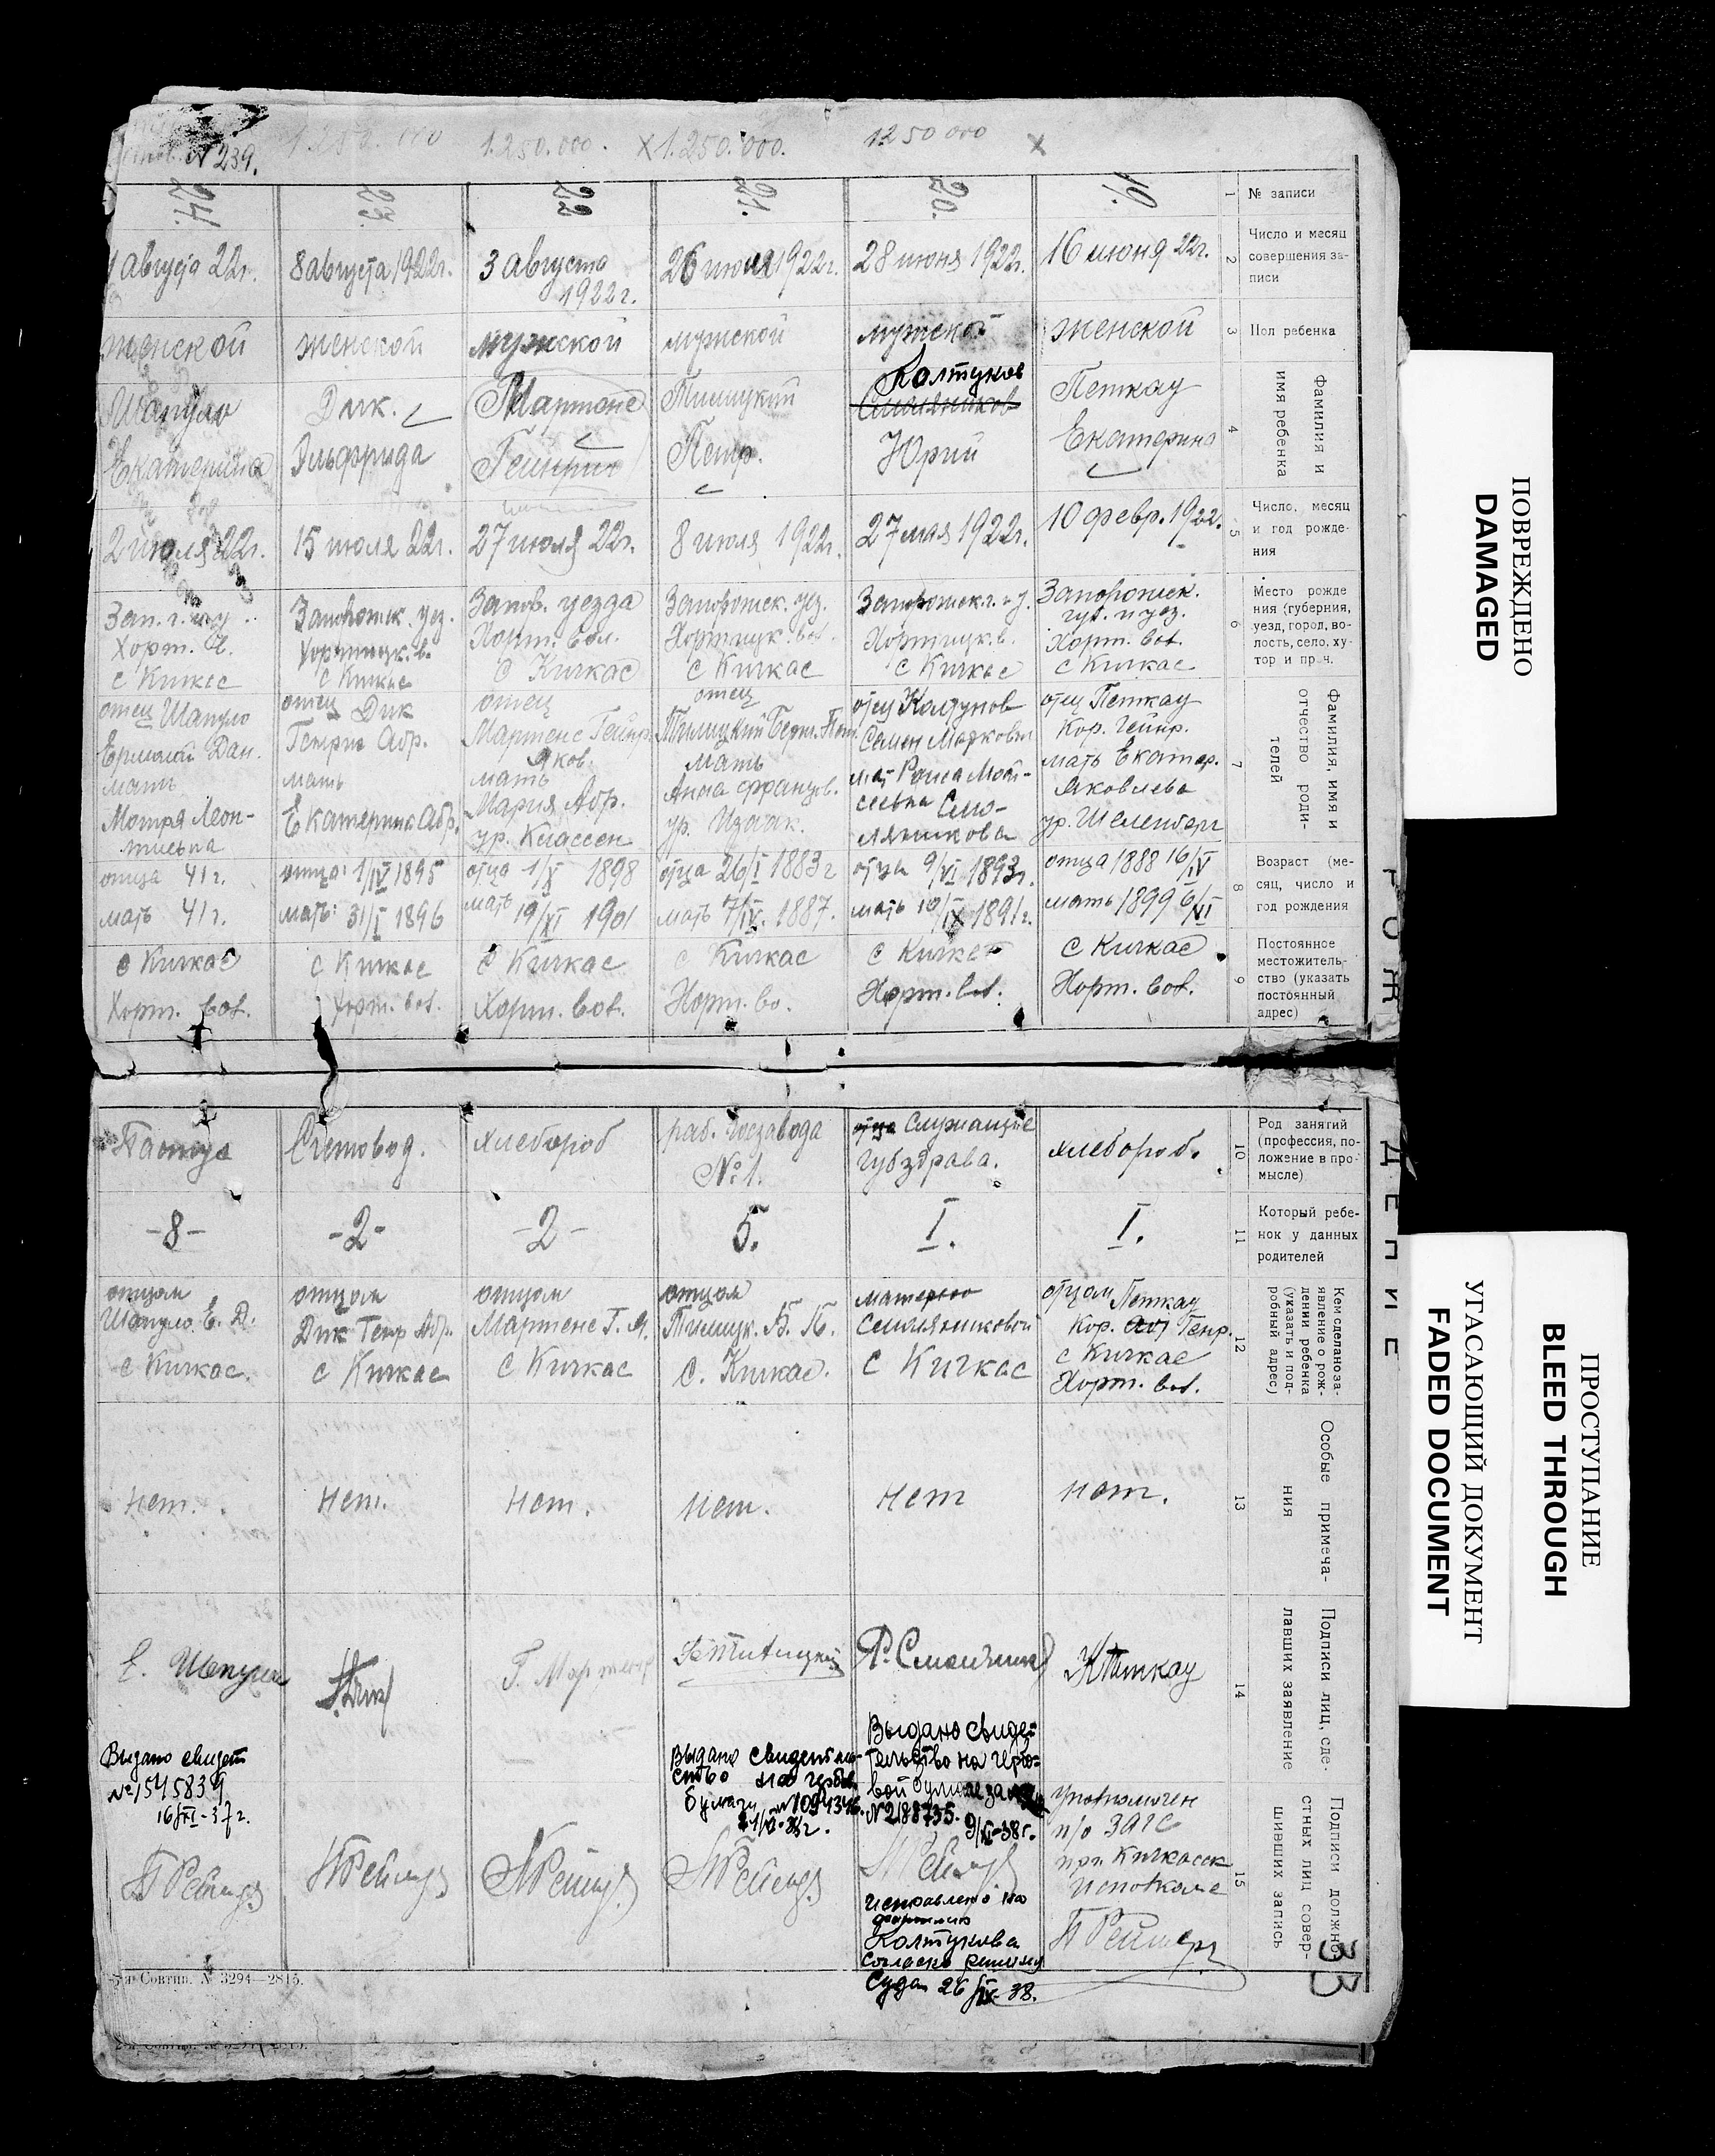 N 239.
1.250.000
1.250.000.
X 1.250.000.
1250 000
X
РОЖДЕНИЕ
33
1
№ записи
2
Число и месяц
совершения за-
писи
3
Пол ребенка
4
Фамилия и
имя ребенка
5
Число, месяц
и год рожде-
ния
6
Место рожде
ния (губерния,
уезд, город, во-
лость, село, ху-
тор и проч.
7
Фамилия, имя и
отчество роди-
телей
8
Возраст (ме-
сяц, число и
год рождения
9
Постоянное
местожитель-
ство (указать
постоянный
адрес)
10
Род занятий
(профессия, по-
ложение в про-
мысле)
11
Который ребе-
нок у данных
родителей
12
Кем сделано за-
явление о рож-
дении ребенка
(указать и под-
робный адрес)
13
Особые примеча-
ния
14
Подписи лиц, сде-
лавших заявление
15
Подписи должно-
стных лиц совер-
шивших запись
19.
16 июня 22г.
женской
Петкау
Екатерина
10 февр. 1922.
Запорожск.
губ. и уез.
Хорт. вол.
с Кичкас
отец Петкау
Кор. Гейнр.
мать Екатер.
Яковлева
ур. Шеленберг
отца 1888 16/IV
мать 1899 6/VI
с Кичкас
Хорт. вол.
хлебороб.
I.
отцом Петкау
Кор. Генр.
с Кичкас
Хорт. вол.
нет.
КПеткау
п/о ЗАГС
при Кичкасск
Исполкоме
ПРеймер
20.
28 июня 1922г.
мужской
Колтунов
Смоляников
Юрий
27 мая 1922г.
Запорожск. г. и у.
Хортицк. в.
с Кичкас
отец Колтунов
Семен Маркович
мать Раиса Мои-
сеевна Смо-
ляникова
отца 9/VI 1893г.
мать 10/IX 1891г.
с Кичкас
Хорт. вол.
отца Служащие
Губздрава.
I.
матерью
Смоляниковой
с Кичкас
нет
Выдано свиде-
тельство на гербо-
вой бумаге за
N 2188735.
9/XI-38г.
Исправлено на
фамилию
Колтунова
согласно решению
Суда 26/IX-38.
21.
26 июля 1922г.
мужской
Тилицкий
Петр.
8 июля 1922г.
Запорожск. уез.
Хортицк. вол.
с Кичкас
отец
Тилицкий Берн. Пет.
мать
Анна Францов.
ур. Изаак.
отца 26/I 1883г
мать 7/IV. 1887.
с Кичкас
Хорт. во.
раб. Госзавода
№1.
5.
отцом
Тилицк. Б. П.
с. Кичкас.
нет.
Выдано свидетель-
ство на гербов.
бумаги N 1094346.
22
3 августа
1922г.
мужской
Мартенс
Гейнрих
27 июля 22г.
Запор. уезда
Хорт. вол.
с Кичкас
отец
Мартенс Гейнр.
Яков.
мать
Мария Абр.
ур. Классен
отца 1/X 1898
мать 19/XI 1901
с Кичкас
Хорт. вол.
хлебороб
-2-
отцом
Мартенс Г. Я.
с Кичкас
нет.
Г. Мартенс
23.
8 августа 1922г.
женской
Дик.
Эльфрида
15 июля 22г.
Запорожск. уез.
Хортицк. в.
с Кичкас
отец Дик
Генрих Абр.
мать
Екатерина Абр.
отца: 1/IV 1895
мать: 31/I 1896
с Кичкас
Хорт. вол.
Счетовод.
-2-
отцом
Дик Генр Абр.
с Кичкас
нет.
24.
августа 22г.
женской
Шапуло
Екатерина
2 июля 22г.
Зап. г. и у.
Хорт. в.
с Кичкас
отец Шапуло
Ермолай Дан.
мать
Мотря Леон-
тиевна
отца 41г.
мать 41г.
с Кичкас
Хорт. вол.
Пастух
-8-
отцом
Шапуло Е. Д.
с Кичкас.
нет.
Е. Шапуло
Выдано свидет
№1545839
16/XI-37г.
5-я Совтип. N 3294—2815.
ПОВРЕЖДЕНО
DAMAGED
УГАСАЮЩИЙ ДОКУМЕНТ
FADED DOCUMENT
ПРОСТУПАНИЕ
BLEED THROUGH